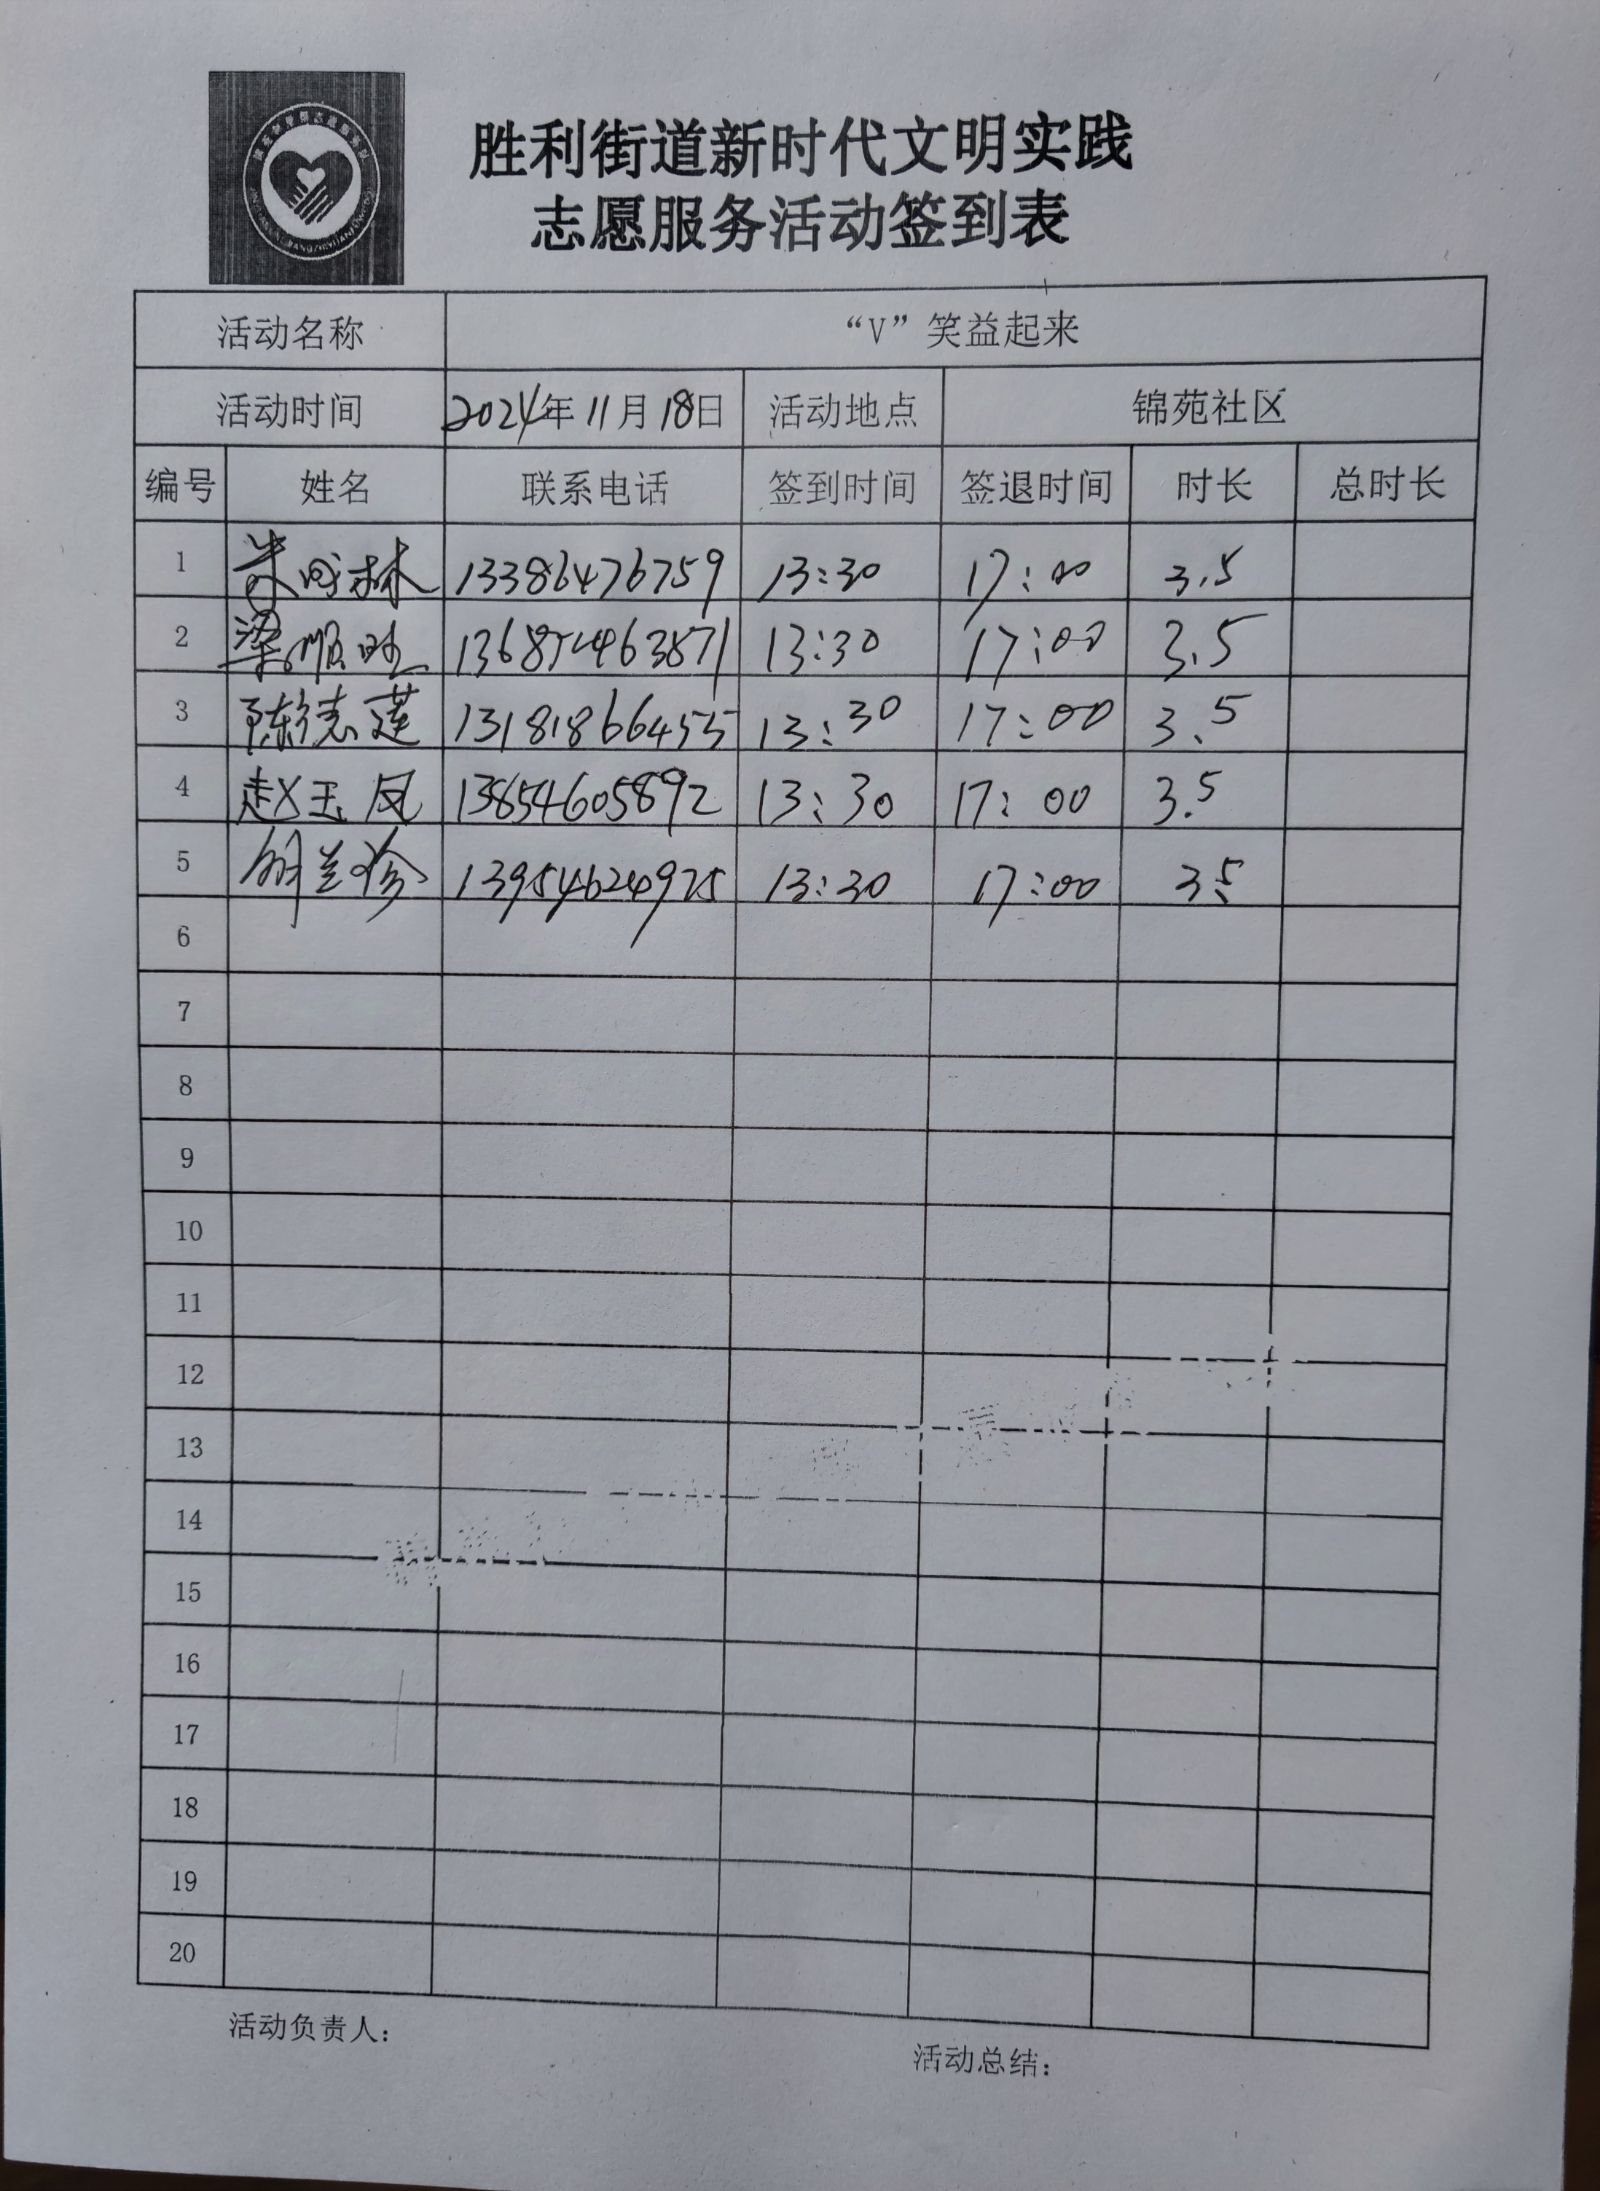 胜利街道新时代文明实践
志愿服务活动签到表
活动名称 “V”笑益起来
活动时间 2024年11月18日 活动地点 锦苑社区
编号 姓名 联系电话 签到时间 签退时间 时长 总时长
1 13386476759 13:30 17:00 3.5
2 梁顺 13:30 17:00 3.5
3 陈德莲 13181866455 13:30 17:00 3.5
4 赵玉凤 13854605892 13:30 17:00 3.5
5 兰珍 13954624975 13:30 17:00 3.5
6
7
8
9
10
11
12
13
14
15
16
17
18
19
20
活动负责人:
活动总结: